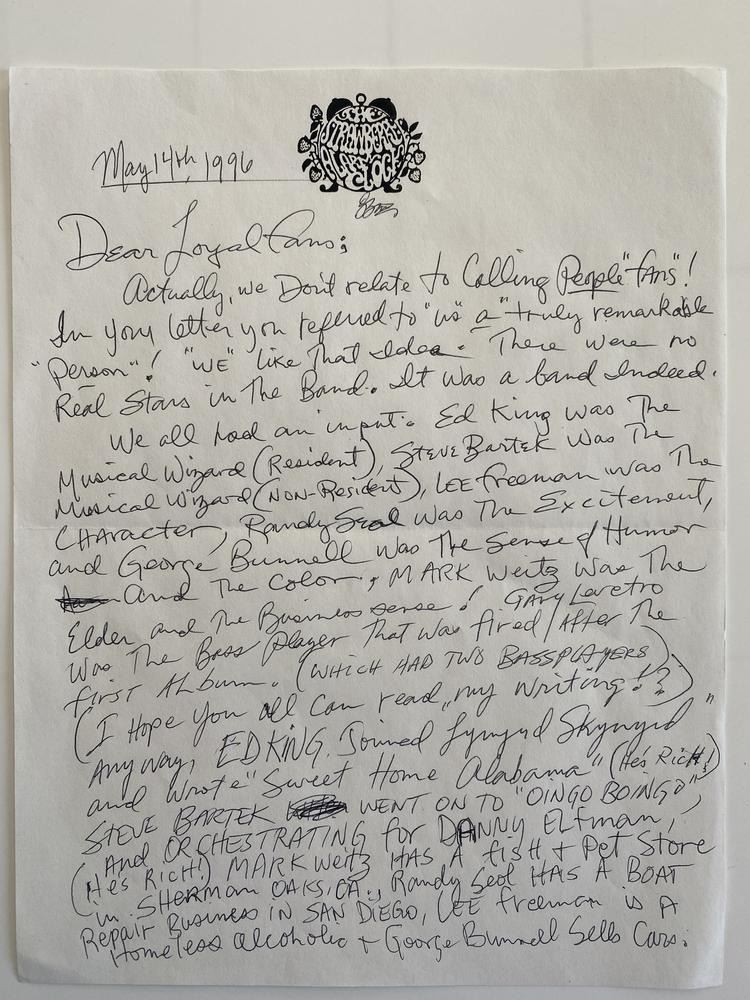 THE
STRAWBERRY
ALARM
CLOCK
May 14th, 1996
Dear Loyal Fans;
Actually, we Don't relate to Calling People "fans"!
In your letter you referred to "us" a "truly remarkable
"Person"! "WE" like That Idea. There were no
Real Stars in The Band. It was a band Indeed.
We all had an input. Ed King was The
Musical Wizard (Resident), Steve Bartek was The
Musical Wizard (NON-Resident), LEE freeman was The
CHAracter, Randy Seol was The Excitement,
and George Bunnell was The Sense of Humor
And The Color, MARK Weitz Was The
Elder and The Business sense! GARY Lovetro
Was The Bass Player That was fired / After The
first Album. (WHICH HAD TWO BASSPLAYERS)
(I Hope You all Can read my writing!?)
Anyway, ED KING Joined "Lynyrd Skynyrd"
and wrote "Sweet Home Alabama" (He's RicH!)
STEVE BARTEK WENT ON TO "OINGO BOINGO",
And ORCHESTRATING for DANNY Elfman,
(He's RicH!) MARK Weitz HAS A fisH + Pet Store
in SHERMAN OAKS, CA., Randy Seol HAS A BOAT
Repair Business IN SAN DIEGO, LEE freeman is A
Homeless alcoholic + George Bunnell Sells Cars.